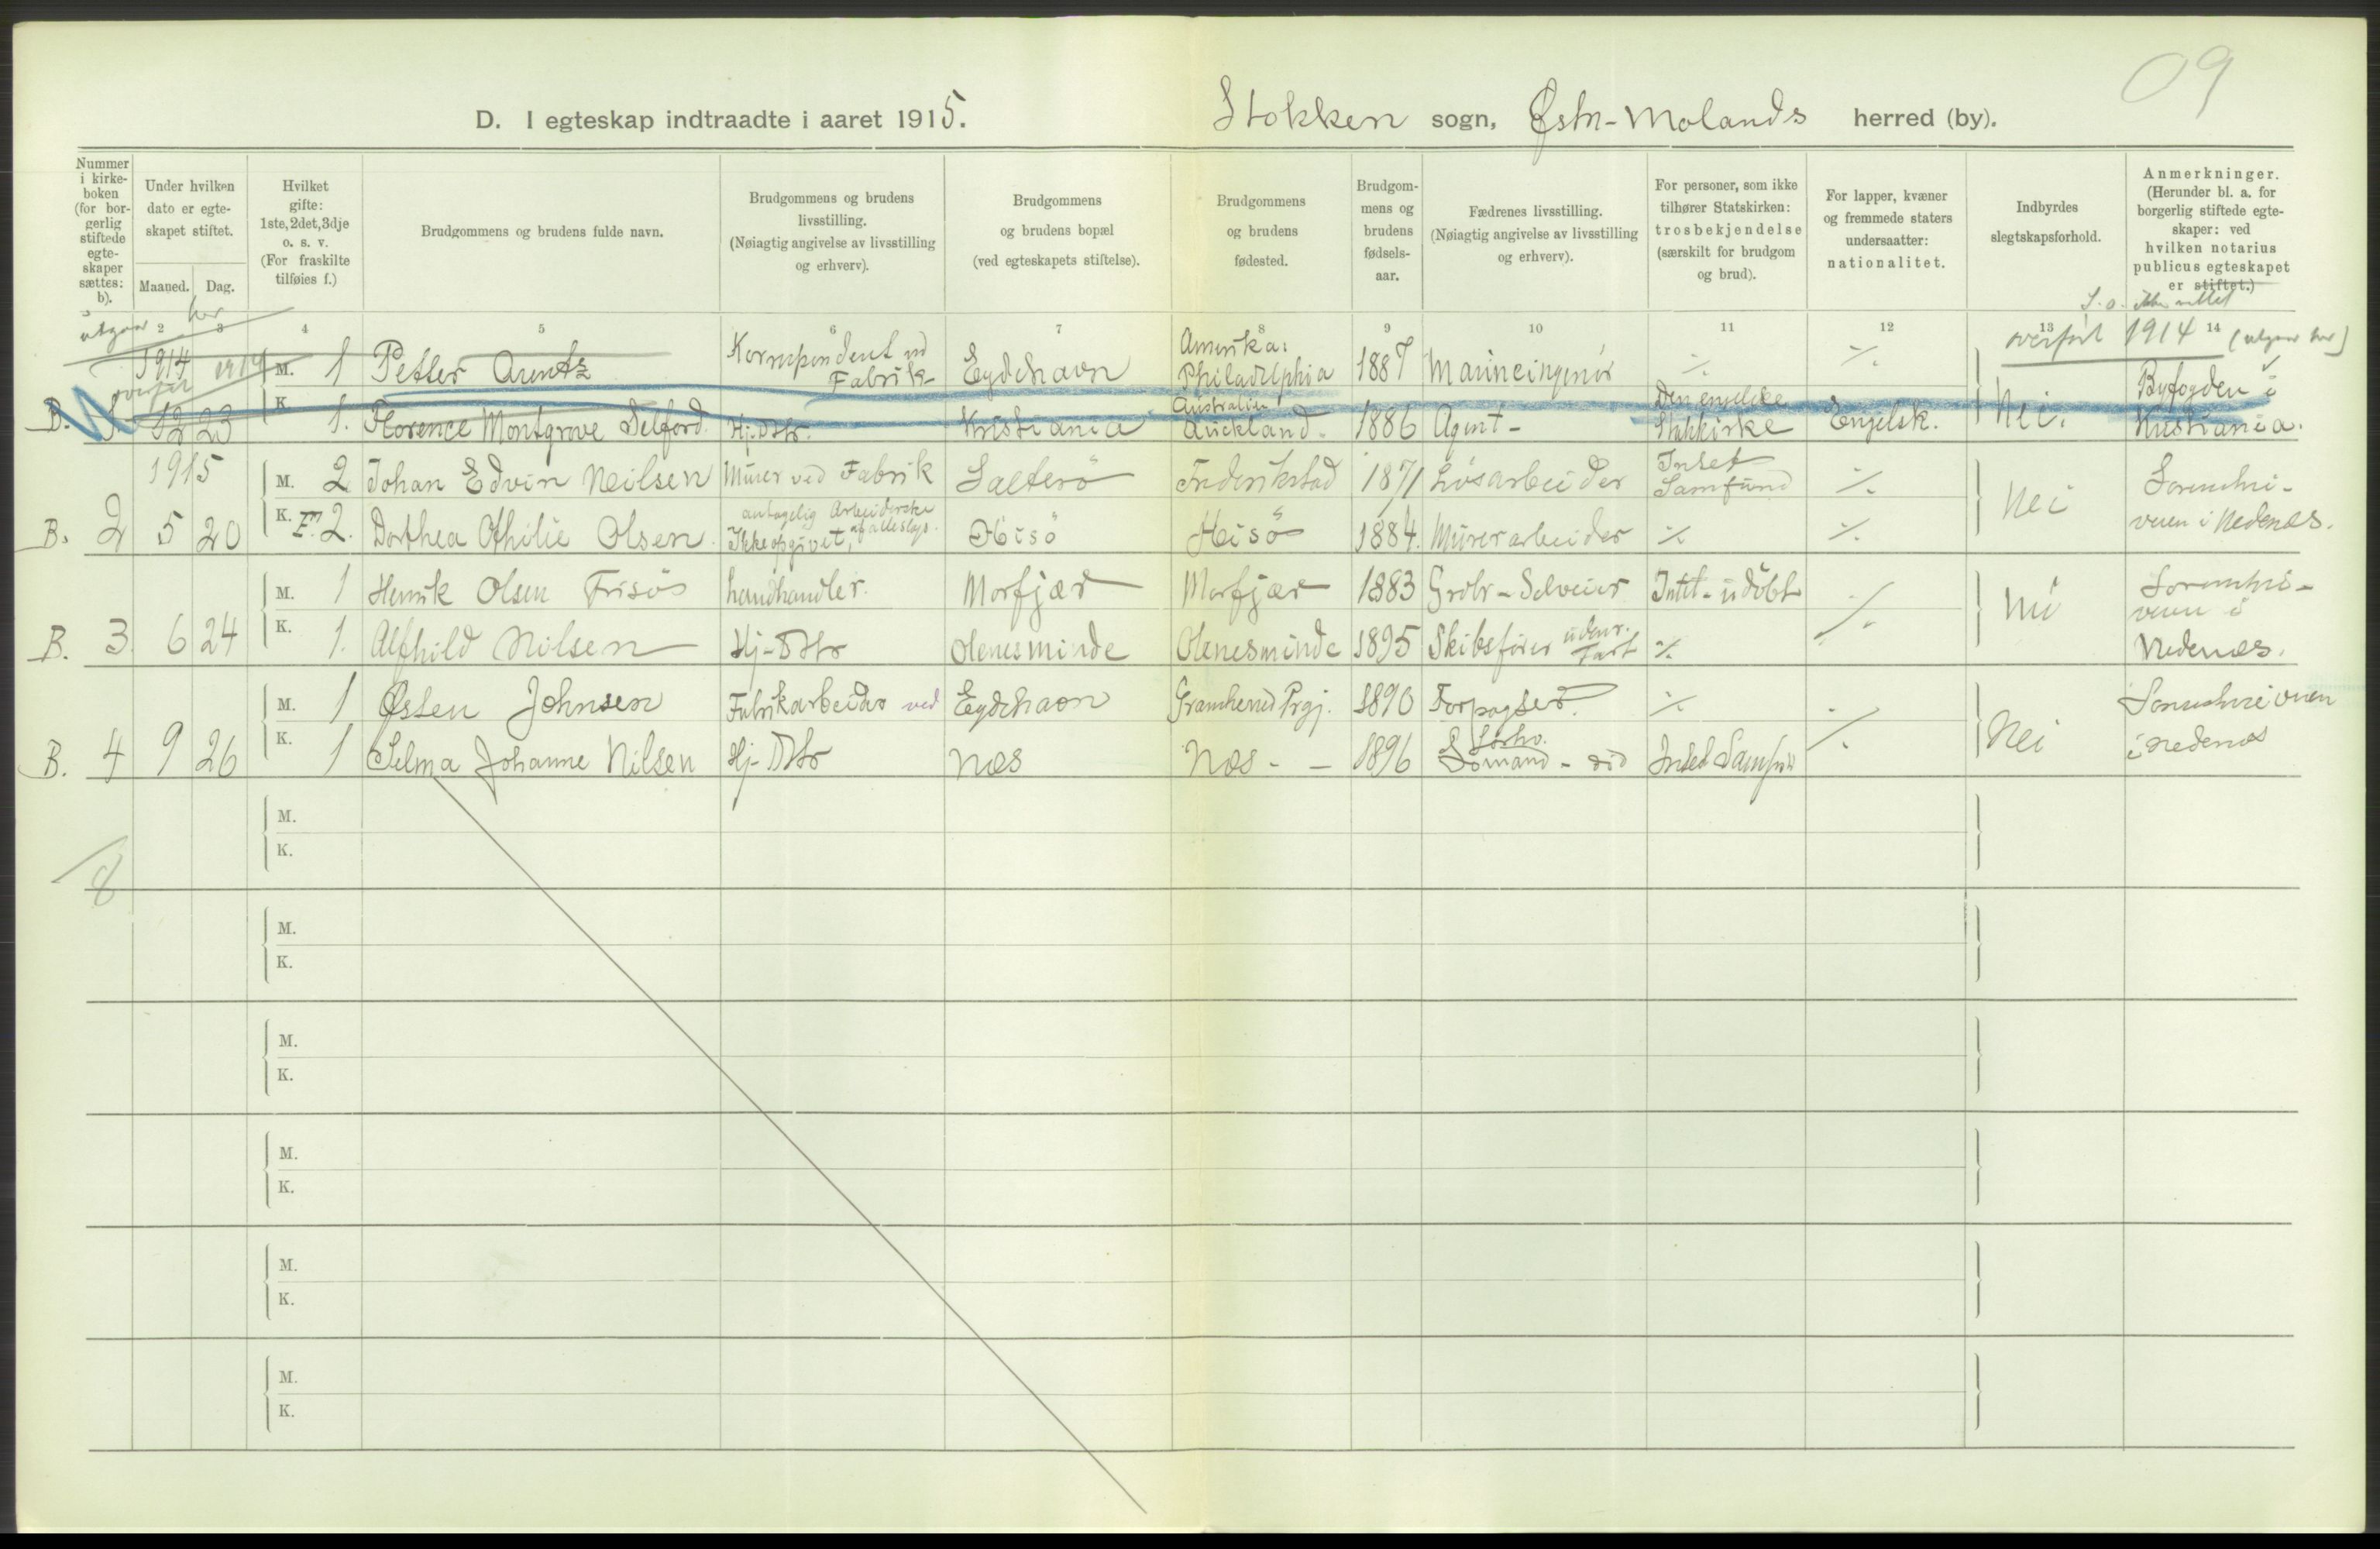 09
D. I egteskap indtraadte i aaret 1915. Stokken sogn, Østr-Molands herred (by).
Nummer i kirke-boken (for bor-gerlig stiftede egte-skaper sættes: b).
Under hvilken dato er egte-skapet stiftet.
Maaned. Dag.
Hvilket gifte: 1ste, 2det, 3dje o. s. v. (For fraskilte tilføies f.)
Brudgommens og brudens fulde navn.
Brudgommens og brudens livsstilling. (Nøiagtig angivelse av livsstilling og erhverv).
Brudgommens og brudens bopæl (ved egteskapets stiftelse).
Brudgommens og brudens fødested.
Brudgom-mens og brudens fødsels-aar.
Fædrenes livsstilling. (Nøiagtig angivelse av livsstilling og erhverv).
For personer, som ikke tilhører Statskirken: trosbekjendelse (særskilt for brudgom og brud).
For lapper, kvæner og fremmede staters undersaatter: nationalitet.
Indbyrdes slegtskapsforhold.
Anmerkninger. (Herunder bl. a. for borgerlig stiftede egte-skaper: ved hvilken notarius publicus egteskapet er stiftet.)
utgaar her
2 3 4 5 6 7 8 9 10 11 12 13 14
overført 1914 (utgaar her)
1914 overført 1914
M. 1 Petter Arentz Korrespondent ved Fabrik- Eydehavn Amerika: Philadelphia 1887 Marineingeniør ./. ./.
B. 1. 12 23 K. 1. Florence Montgrove Selford. Hj. Dtr. Kristiania Australien Auckland. 1886 Agent- Den engelske Statskirke Engelsk. Nei. Byfogden i Kristiania.
1915
M. 2 Johan Edvin Neilsen Murer ved Fabrik Salterö Frederikstad 1871 Løsarbeider Intet Samfund ./. Nei Sorenskri-veren i Nedenæs.
B. 2 5 20 K. 2. Dorthea Othilie Olsen. Ikke opgivet, antagelig Arbeiderske af alleslags. Hisö Hisö 1884. Murerarbeider ./. ./.
M. 1 Henrik Olsen Frisøs handhandler. Morfjær Morfjær 1883 Grdbr-Selveier Intet-udöbt ./. Nei Sorenskri-veren i Nedenæs.
B. 3 6 24 K. 1. Alfhild Nilsen Hj-Dtr Olenesminde Olenesminde 1895 Skibsfører udenr. Fart ./.
M. 1 Østen Johnsen Fabrikarbeider ved Eydehavn Gramherred Prgj. 1890 Forpagter. ./. ./. Nei Sorenskriveren i Nedenæs
B. 4 9 26 K. 1 Selma Johanne Nilsen Hj-Dtr Næs Næs - - 1896 Sømand - Intet Samfund
M.
K.
8
M.
K.
M.
K.
M.
K.
M.
K.
M.
K.